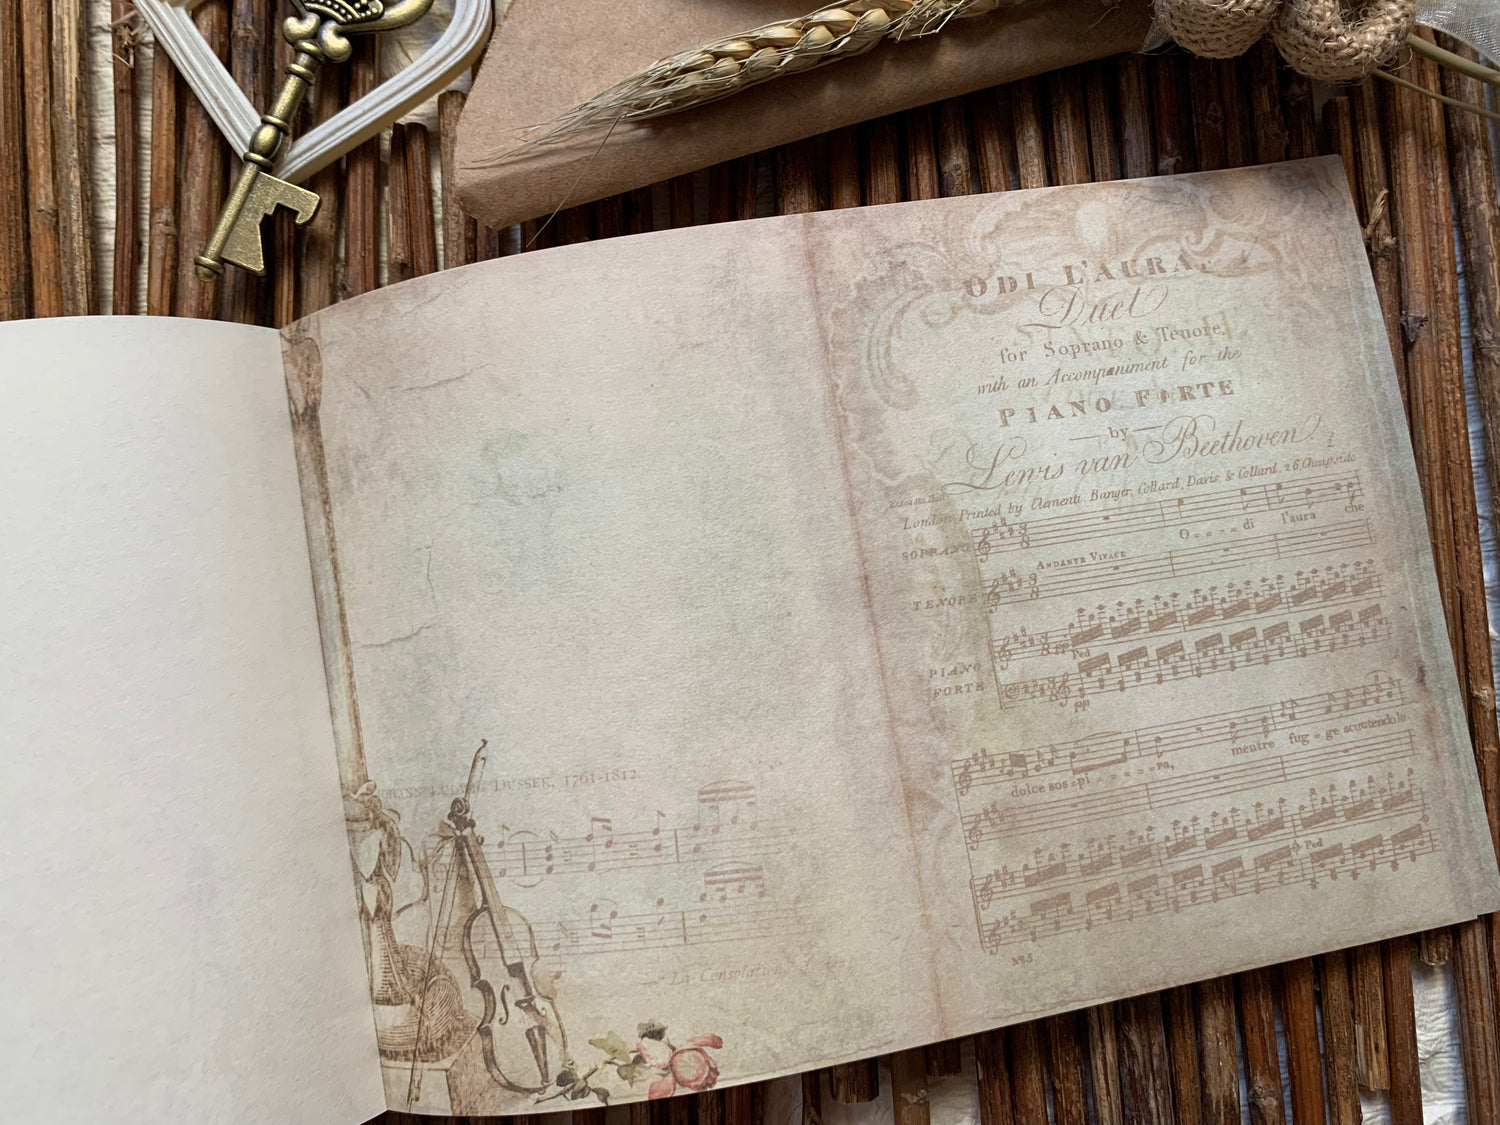 DUSSEK, 1761-1812.
La Consolation
ODI L'AURA,
Duet
for Soprano & Tenore,
with an Accompaniment for the
PIANO FORTE
by
Lewis van Beethoven.
London, Printed by Clementi, Banger, Collard, Davis, & Collard, 26, Cheapside
SOPRANO
O - - - - di l'aura che
ANDANTE VIVACE
TENORE
pp Ped
PIANO
FORTE
pp
mentre fug - ge scuotendo le
dolce sos - pi - - - - - ra,
Ped
No. 5